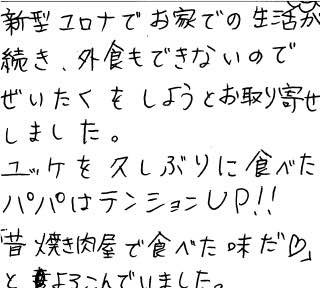 新型コロナでお家での生活が
続き、外食もできないので
ぜいたくをしようとお取り寄せ
しました。
ユッケを久しぶりに食べた
パパはテンションUP!!
「昔焼き肉屋で食べた味だ♡」
とよろこんでいました。